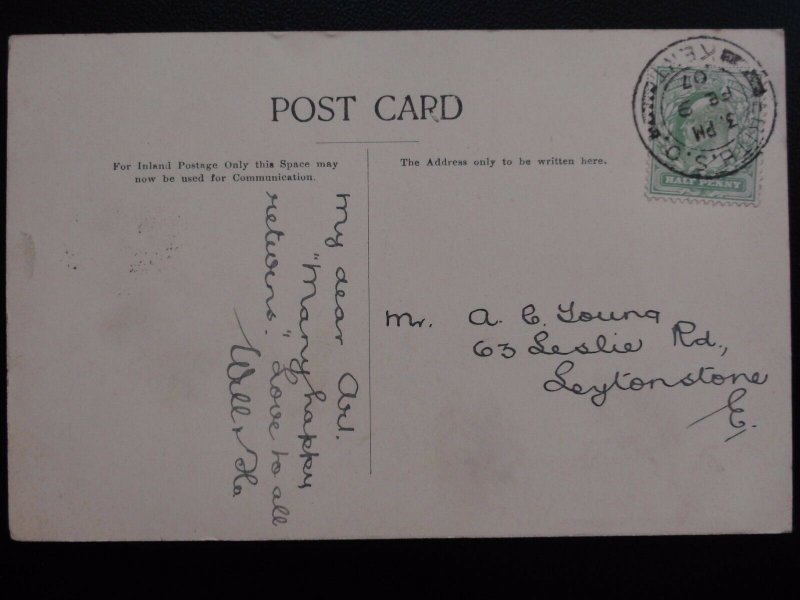 POST CARD
For Inland Postage Only this Space may
now be used for Communication.
The Address only to be written here.
My dear Art.
"Many happy
returns." Love to all
Will &
Mr. A. E. Young
63 Leslie Rd.,
Leytonstone
E.
HALF PENNY
B.S.O.
KENT
3. PM
FE 9
07